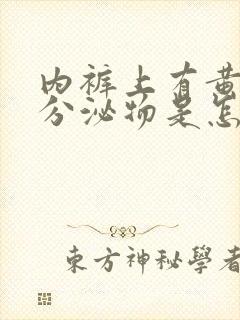 内裤上有黄
分泌物是怎
東方神秘學者